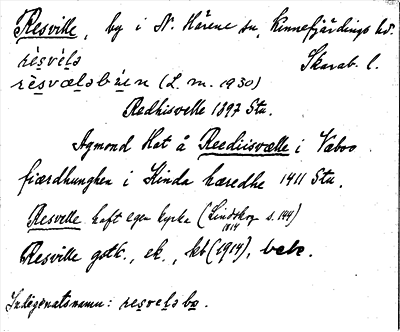 Resville, by i N. Härene sn, Kinnefjärdings hd.
rèsvélə Skarab. l.
rèsvæləbń̥en (L. m. 1930)
Redhisvelle 1397 Stu.
Agmond Hat å Reedhisvælle i Væboo
fiærdhunghen i Kinda hæredhe 1411 Stu.
Resville haft egen kyrka (Lindskog s. 144)
1814
Resville gstk., ek., kb (1914), bebo.
Indigenatsnamn: resveləbo.